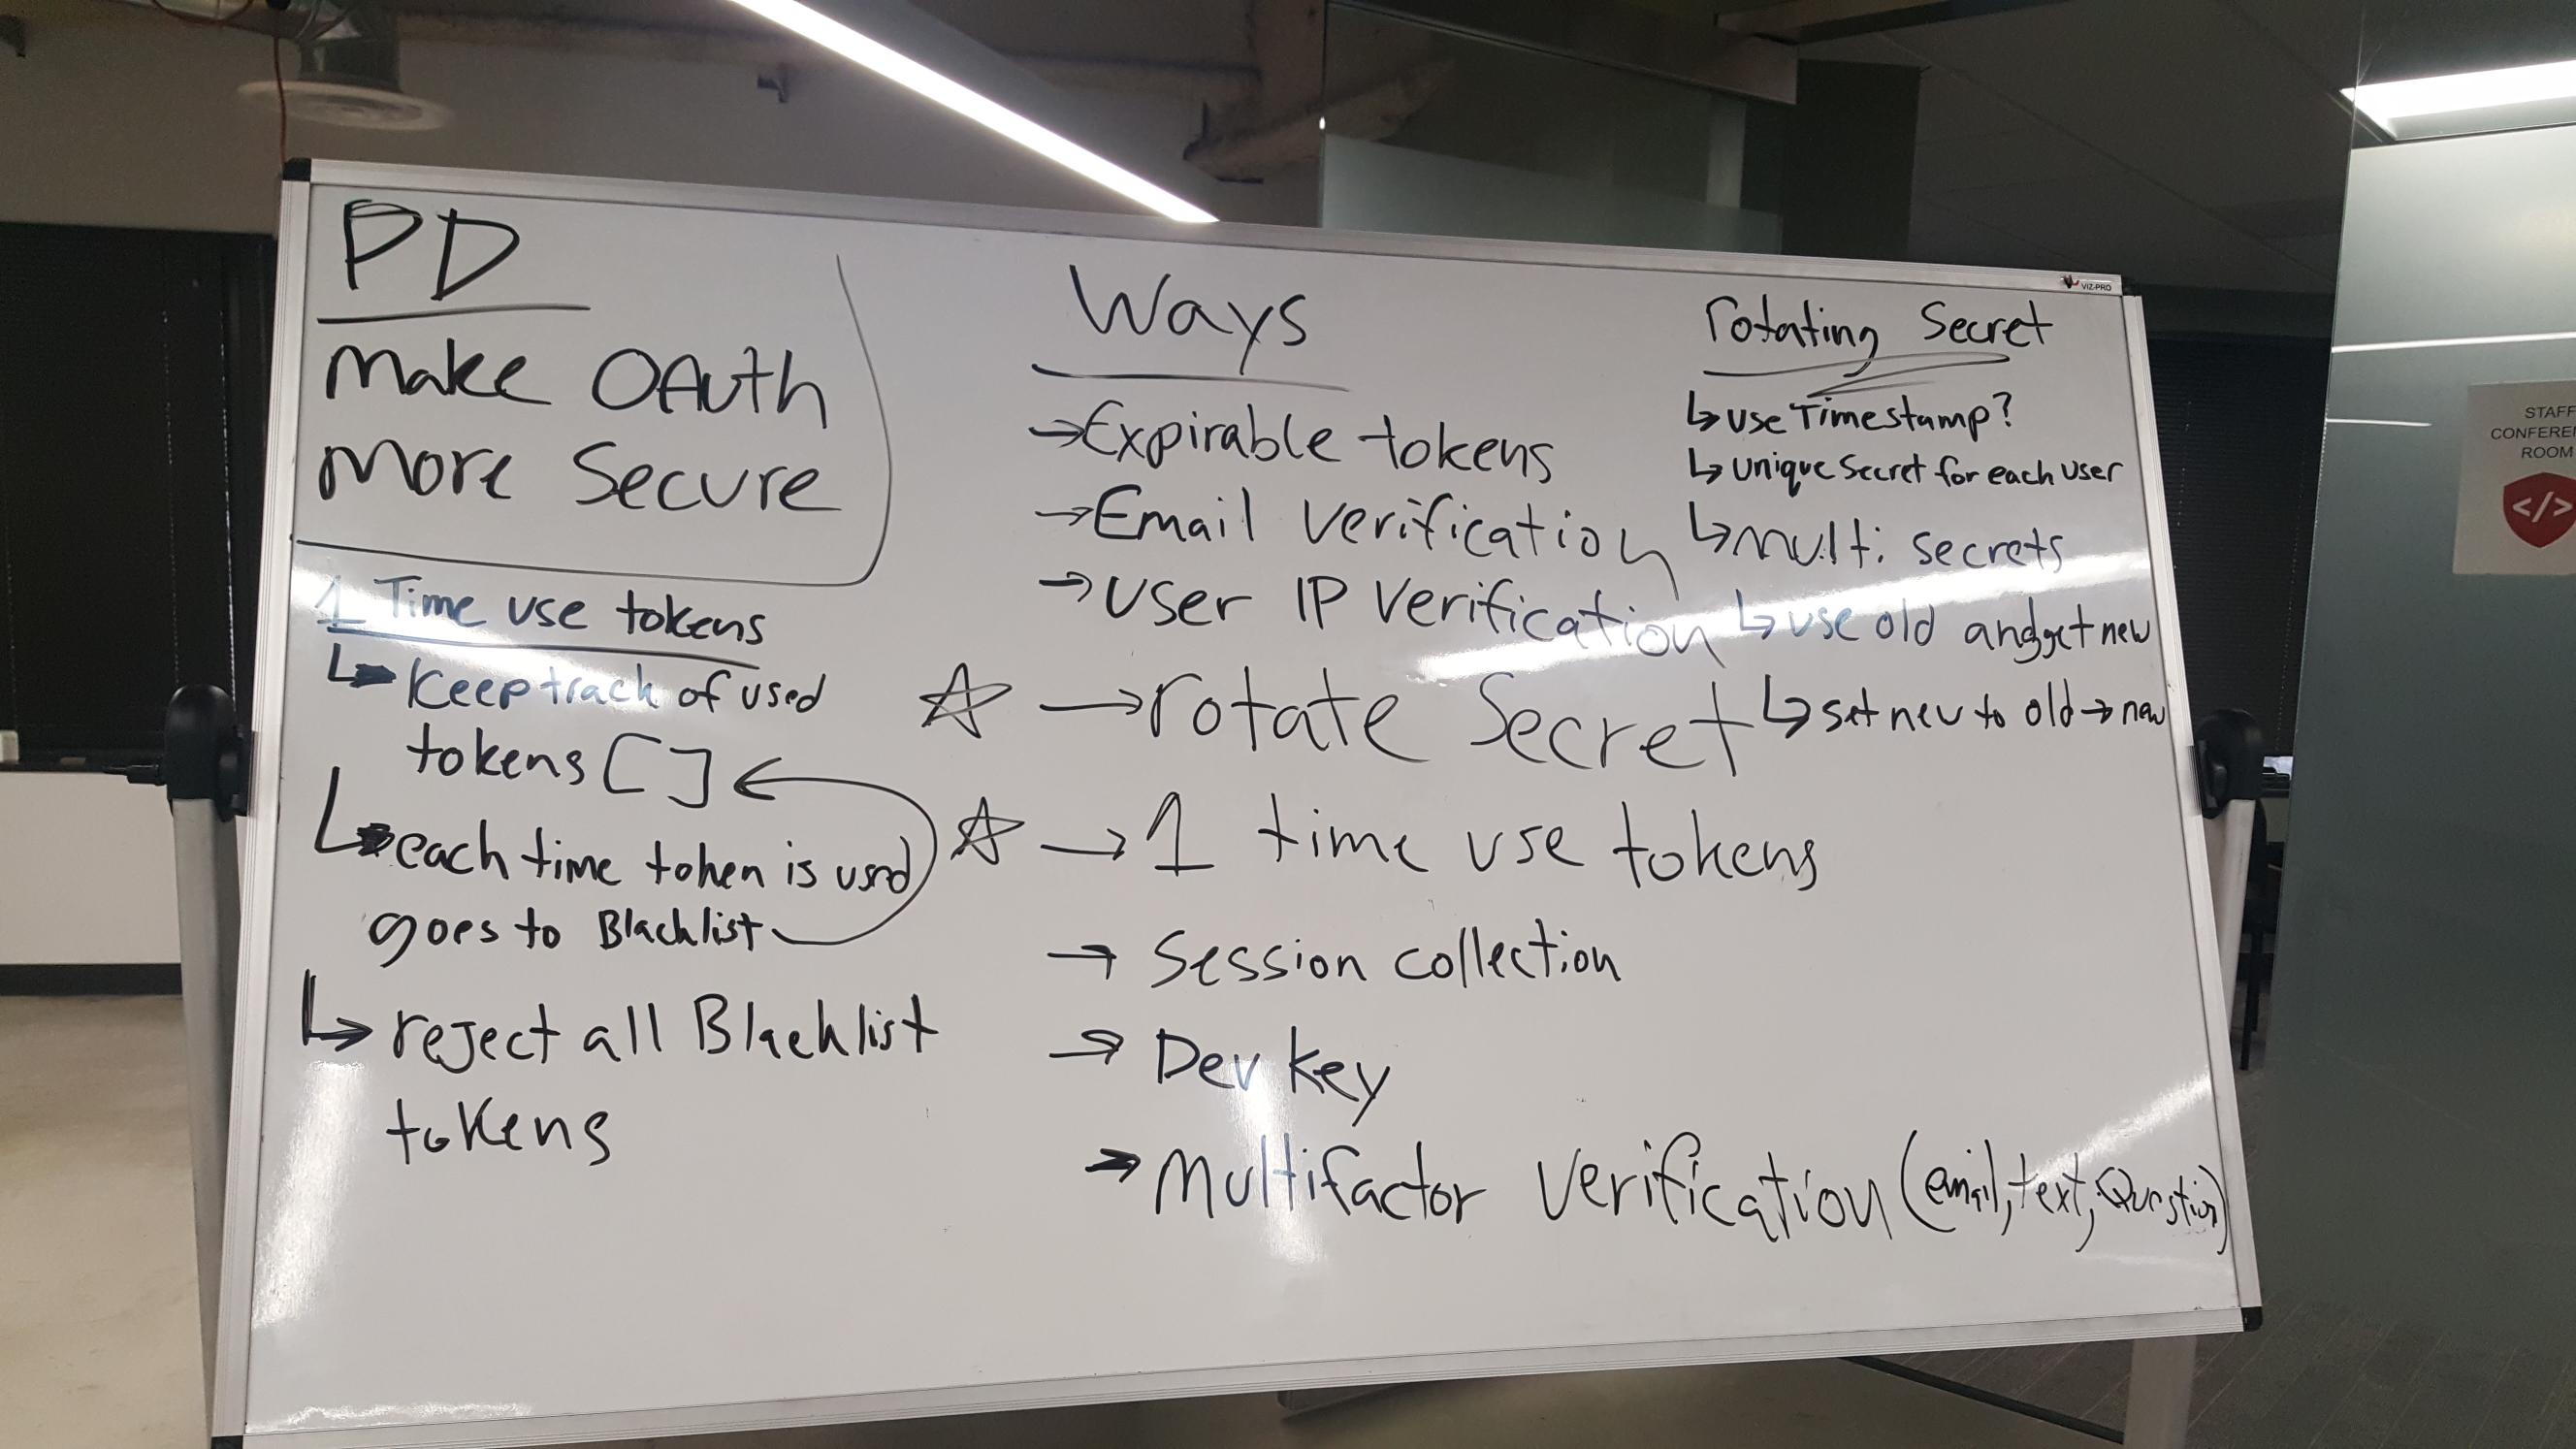 PD
Make OAuth
More Secure
1 Time use tokens
↳ Keep track of used
tokens []
↳ each time token is used
goes to Blacklist
↳ reject all Blacklist
tokens
Ways
→ Expirable tokens
→ Email Verification
→ User IP Verification
☆ → rotate Secret
☆ → 1 time use tokens
→ Session collection
→ Dev key
→ Multifactor Verification (email, text, Question)
rotating Secret
↳ use Timestamp?
↳ Unique Secret for each user
↳ Multi secrets
↳ use old and get new
↳ set new to old → new
VIZ-PRO
STAFF
ROOM
</>